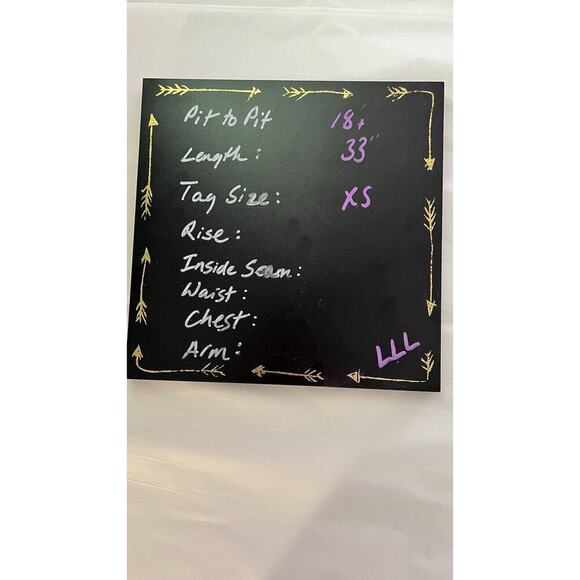 Pit to Pit 18"+
Length: 33"
Tag Size: XS
Rise:
Inside Seam:
Waist:
Chest:
Arm:
LLL